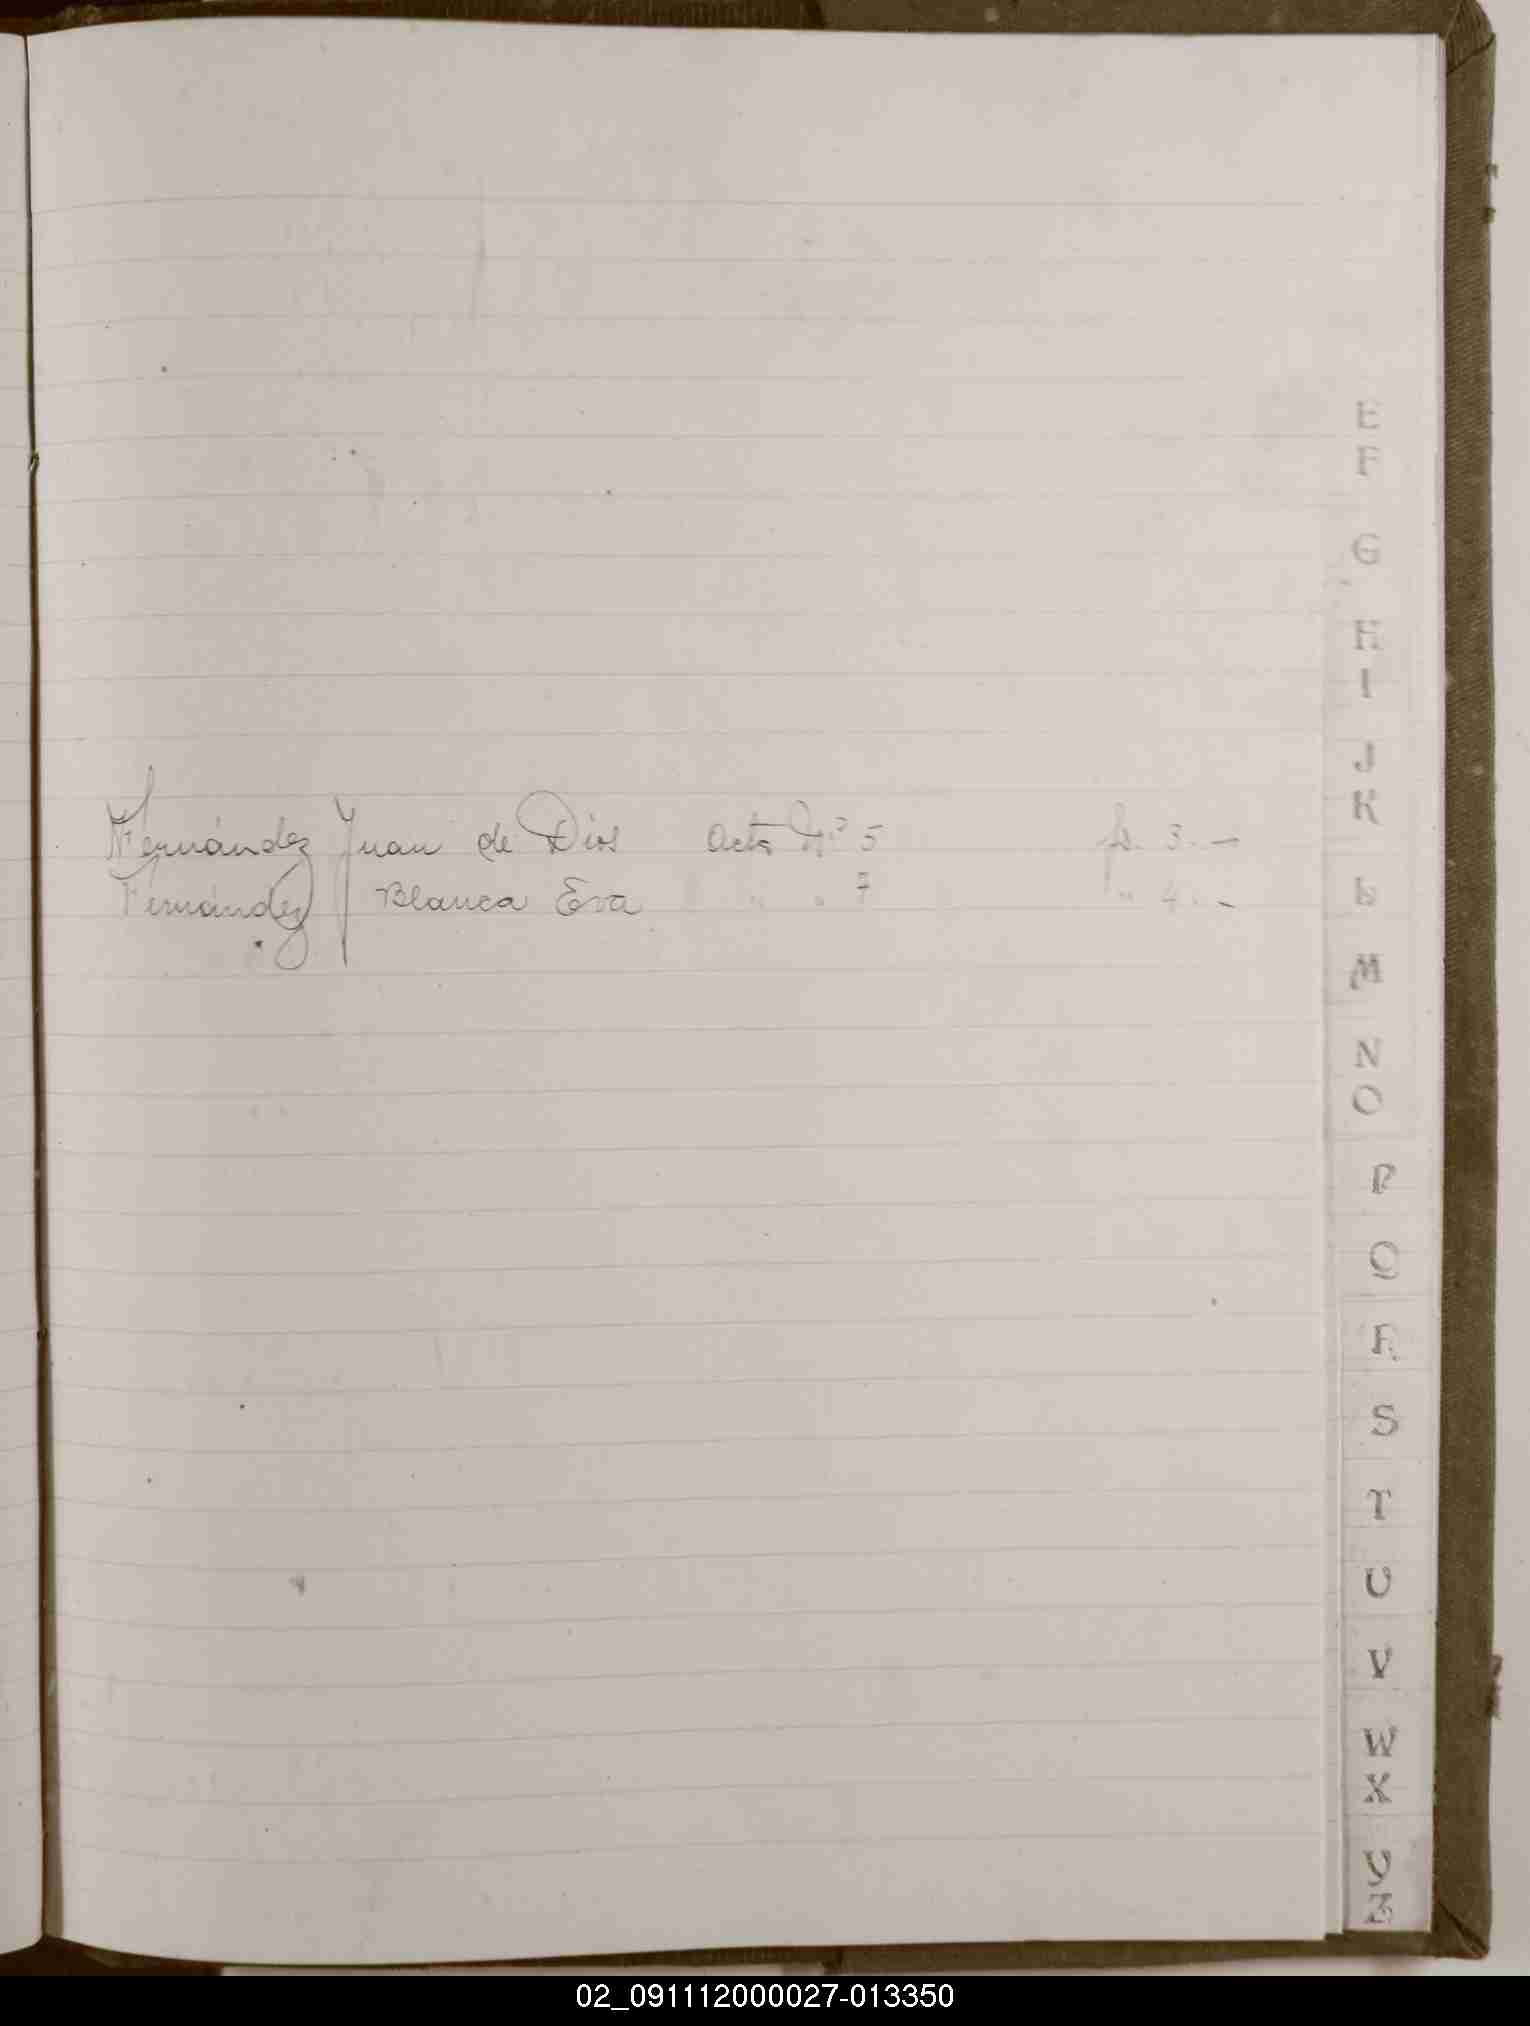 E
F
G
H
I
J
K
Fernández Juan de Dios Acta Nº 5 fs. 3. —
Fernández Blanca Eva " " 7 " 4. -
L
M
N
O
P
Q
R
S
T
U
V
W
X
Y
Z
02_091112000027-013350